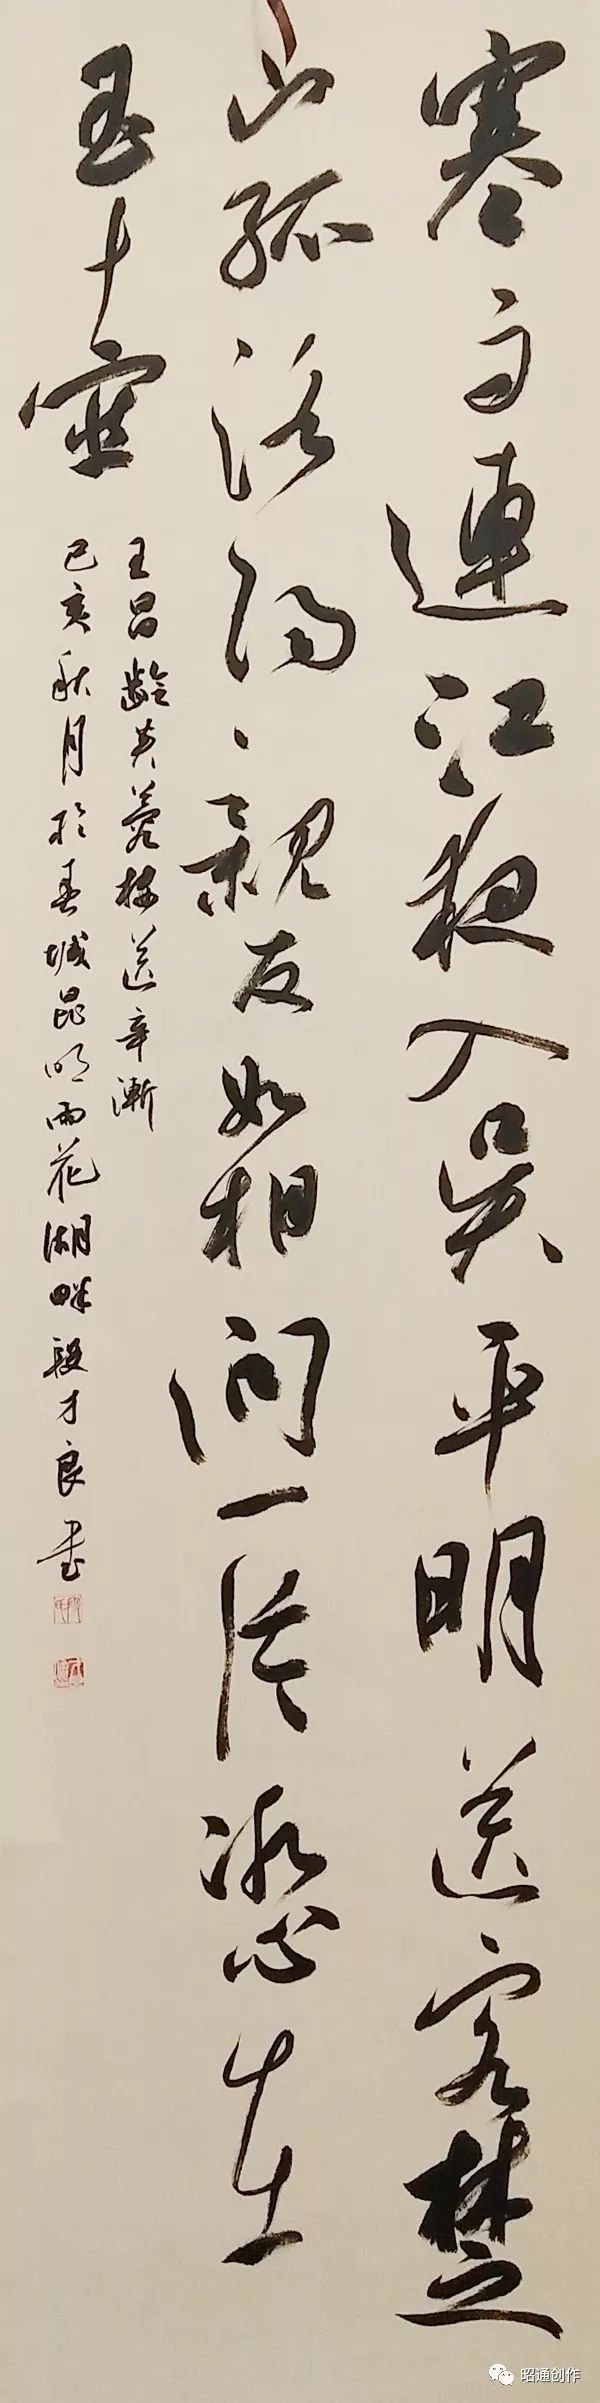 寒雨連江夜入吳平明送客楚
山孤洛陽親友如相問一片冰心在
玉壺
王昌齡芙蓉樓送辛漸
己亥秋月於春城昆明雨花湖畔段才良書
昭通创作